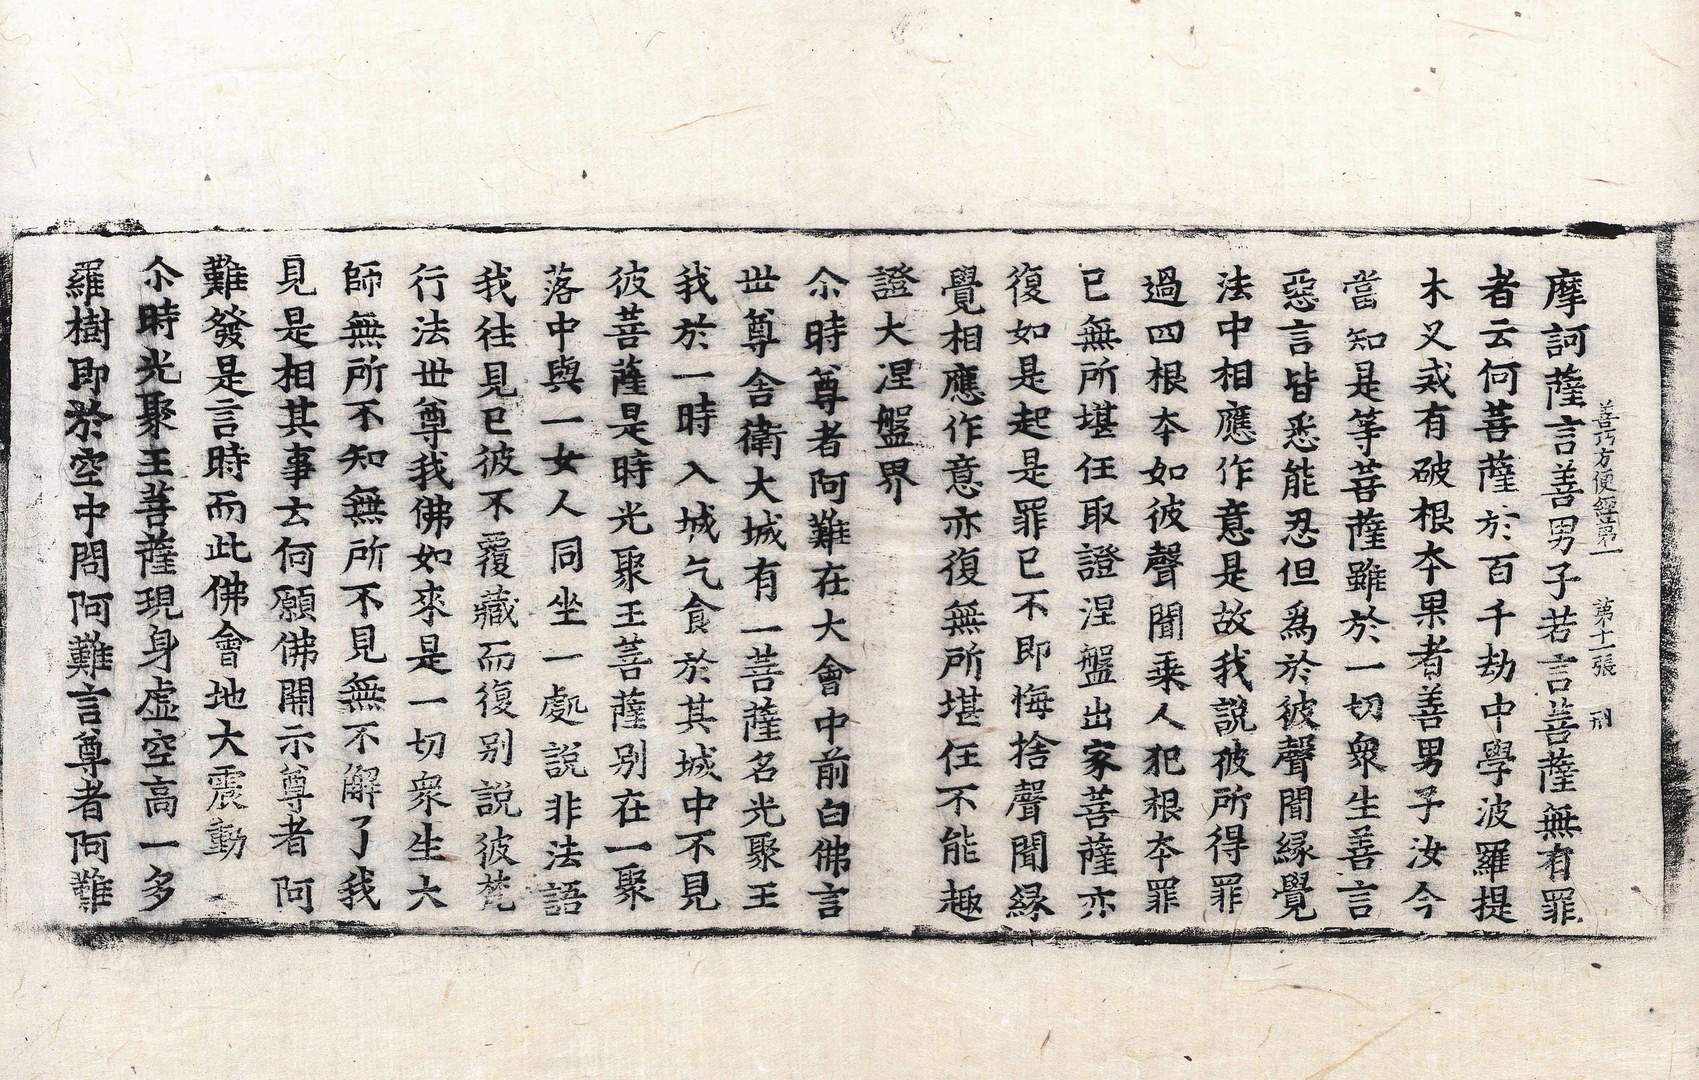 善巧方便經第一　第十一張　刑
摩訶薩言善男子若言菩薩無有罪
者云何菩薩於百千劫中學波羅提
木叉戒有破根本果者善男子汝今
當知是等菩薩雖於一切衆生善言
惡言皆悉能忍但爲於彼聲聞緣覺
法中相應作意是故我說彼所得罪
過四根本如彼聲聞乘人犯根本罪
已無所堪任取證涅盤出家菩薩亦
復如是起是罪已不即悔捨聲聞緣
覺相應作意亦復無所堪任不能趣
證大涅盤界
尒時尊者阿難在大會中前白佛言
世尊舍衛大城有一菩薩名光聚王
我於一時入城乞食於其城中不見
彼菩薩是時光聚王菩薩别在一聚
落中與一女人同坐一處說非法語
我往見已彼不覆藏而復别說彼梵
行法世尊我佛如來是一切衆生大
師無所不知無所不見無不解了我
見是相其事云何願佛開示尊者阿
難發是言時而此佛會地大震動
尒時光聚王菩薩現身虛空高一多
羅樹即於空中問阿難言尊者阿難